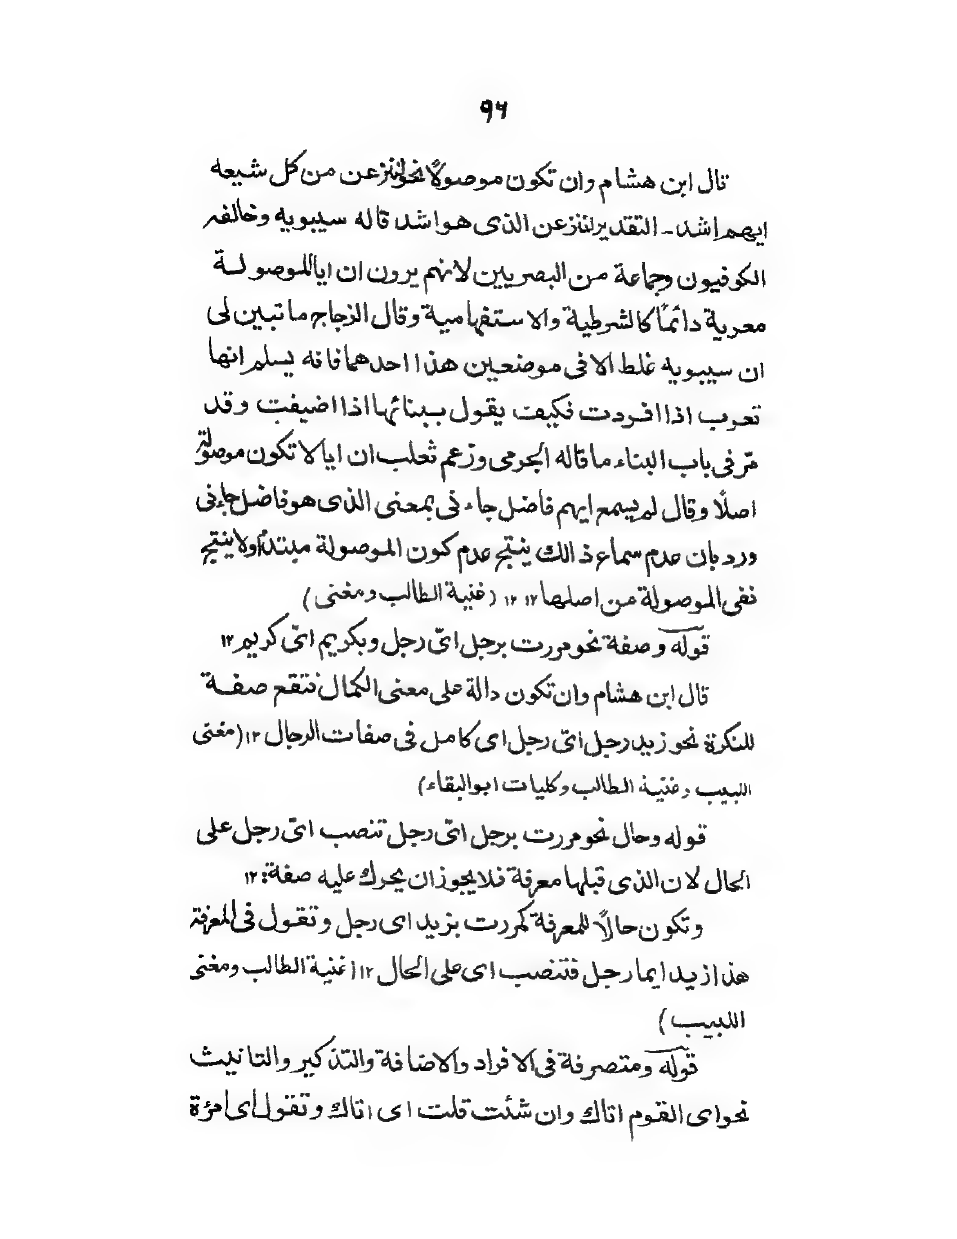 ۹۶
قال ابن هشام وان تكون موصولاً نحو لننزعن من كل شيعه
ايهم اشد ـ التقدير لننزعن الذى هو اشد قاله سيبويه وخالفه
الكوفيون وجماعة من البصريين لانهم يرون ان ايا الموصولة
معربة دائمًا كالشرطية والاستفهامية وقال الزجاج ما تبين لى
ان سيبويه غلط الا فى موضعين هذا احدهما فانه يسلم انها
تعرب اذا افردت فكيف يقول ببنائها اذا اضيفت وقد
مرّ فى باب البناء ما قاله الجرمى وزعم ثعلب ان ايا لا تكون موصولة
اصلًا وقال لم يسمع ايهم فاضل جاءنى بمعنى الذى هو فاضل جاءنى
ورد بان عدم سماع ذالك ينتج عدم كون الموصولة مبتدأ ولا ينتج
نفى الموصولة من اصلها ۱۲ ۱۲ (غنية الطالب ومغنى)
قوله وصفة نحو مررت برجل اىّ رجل وبكريم اىّ كريم ۱۲
قال ابن هشام وان تكون دالة على معنى الكمال فتقع صفة
للنكرة نحو زيد رجل اىّ رجل اى كامل فى صفات الرجال ۱۲ (مغنى
اللبيب وغنية الطالب وكليات ابو البقاء)
قوله وحال نحو مررت برجل اىّ رجل تنصب اىّ رجل على
الحال لان الذى قبلها معرفة فلا يجوز ان يحرك عليه صفة: ۱۲
وتكون حالاً للمعرفة كمررت بزيد اى رجل وتقول فى المعرفة
هذا زيد ايما رجل فتنصب اى على الحال ۱۲ (غنية الطالب ومغنى
اللبيب)
قوله ومتصرفة فى الافراد والاضافة والتذكير والتانيث
نحو اى القوم اتاك وان شئت قلت اى اتاك وتقول اى امرؤة